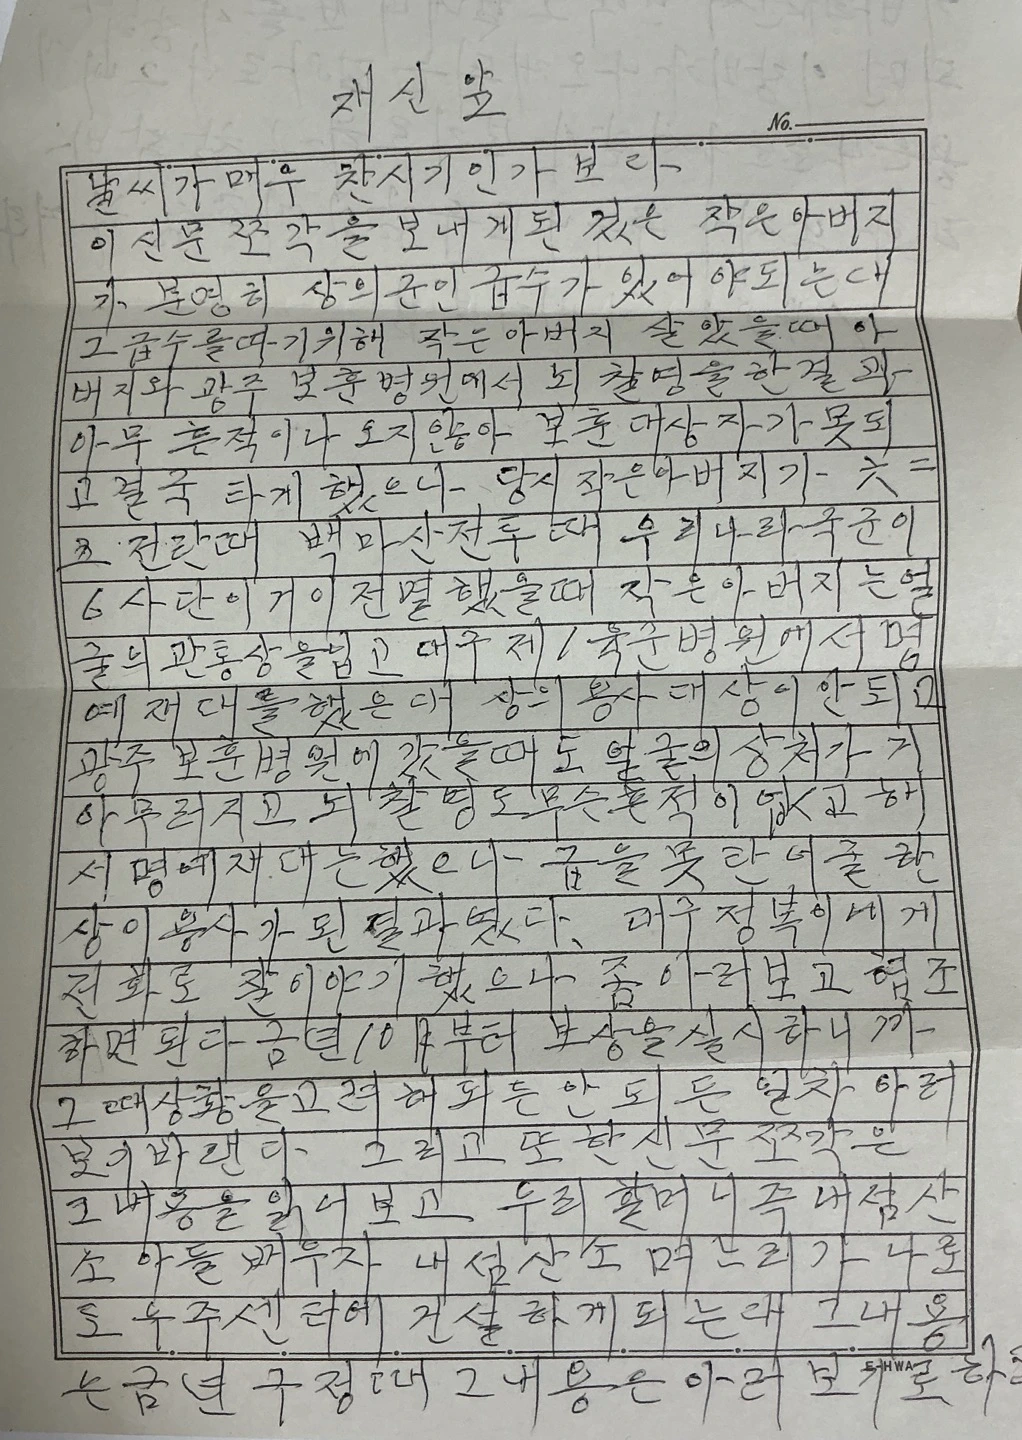 재신앞
No.
날씨가 매우 찬시기인가 보다
이 신문 쪼각을 보내게된 것은 작은아버지
가 분명히 상의군인 급수가 있어야 되는대
그 급수를따기위해 작은아버지 살았을때 아
버지와 광주 보훈병원에서 뇌 촬영을한결과
아무 흔적이나 오지안아 보훈대상자가 못되
고 결국 타게 했으나 당시 작은아버지가 六二
五 전란때 백마산전투 때 우리나라 국군이
6사단이 거이 전멸했을때 작은아버지는 얼
굴의 관통상을입고 대구 제1육군병원에서 명
예재대를했은대 상의용사대상이 안되고
광주보훈병원에 갔을때도 얼굴의 상처가 거
아무러지고 뇌 촬영도 무슨흔적이 없고 해
서 명예재대는했으나 급을 못 탄 억울한
상이용사가 된 결과였다. 대구 정복이에게
전화로 잘이야기 했으나 좀 아라보고 협조
하면된다 금년10月부터 보상을실시하니까
그때상황을고려해 되든 안되든 일차 아러
보기바랜다. 그리고 또한신문쪼각은
그 내용을 읽어보고 우리할머니 주내섬산
소 아들배우자 내섬산소 며느리가 나로
도 우주센터에 건설하게되는대 그내용
은 금년 구정때 그내용은 아러보기로하
E-HWA